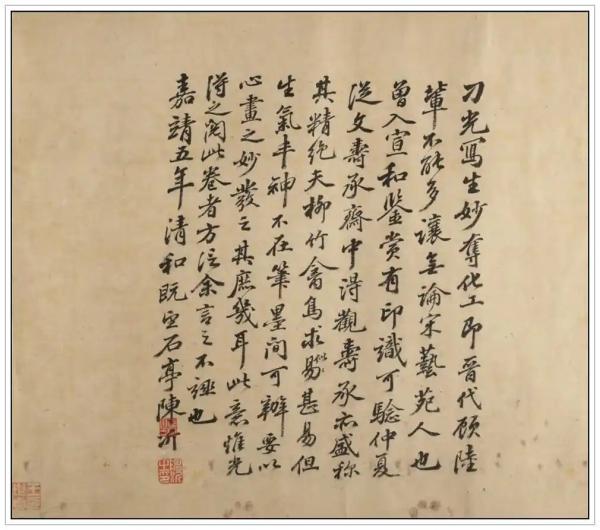 刁光寫生妙奪化工即晉代顧陸
輩不能多讓無論宋藝苑人也
曾入宣和鑒賞有印識可驗仲夏
從文壽承齋中得觀壽承亦盛稱
其精絶夫柳竹禽鳥求似甚易但
生氣丰神不在筆墨間可辦要以
心畫之妙發之其庶幾耳此意惟光
得之閱此卷者方信余言之不誣也
嘉靖五年清和既望石亭陳沂